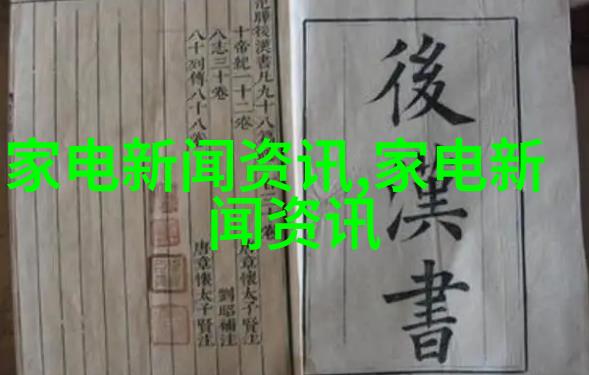 後漢書
范曄後漢書凡九十八
十帝紀一十二卷
八志三十卷
八十列傳八十八卷
唐章懷太子賢注
劉昭補注
唐章懷太子賢注
家电新闻资讯,家电新
闻资讯